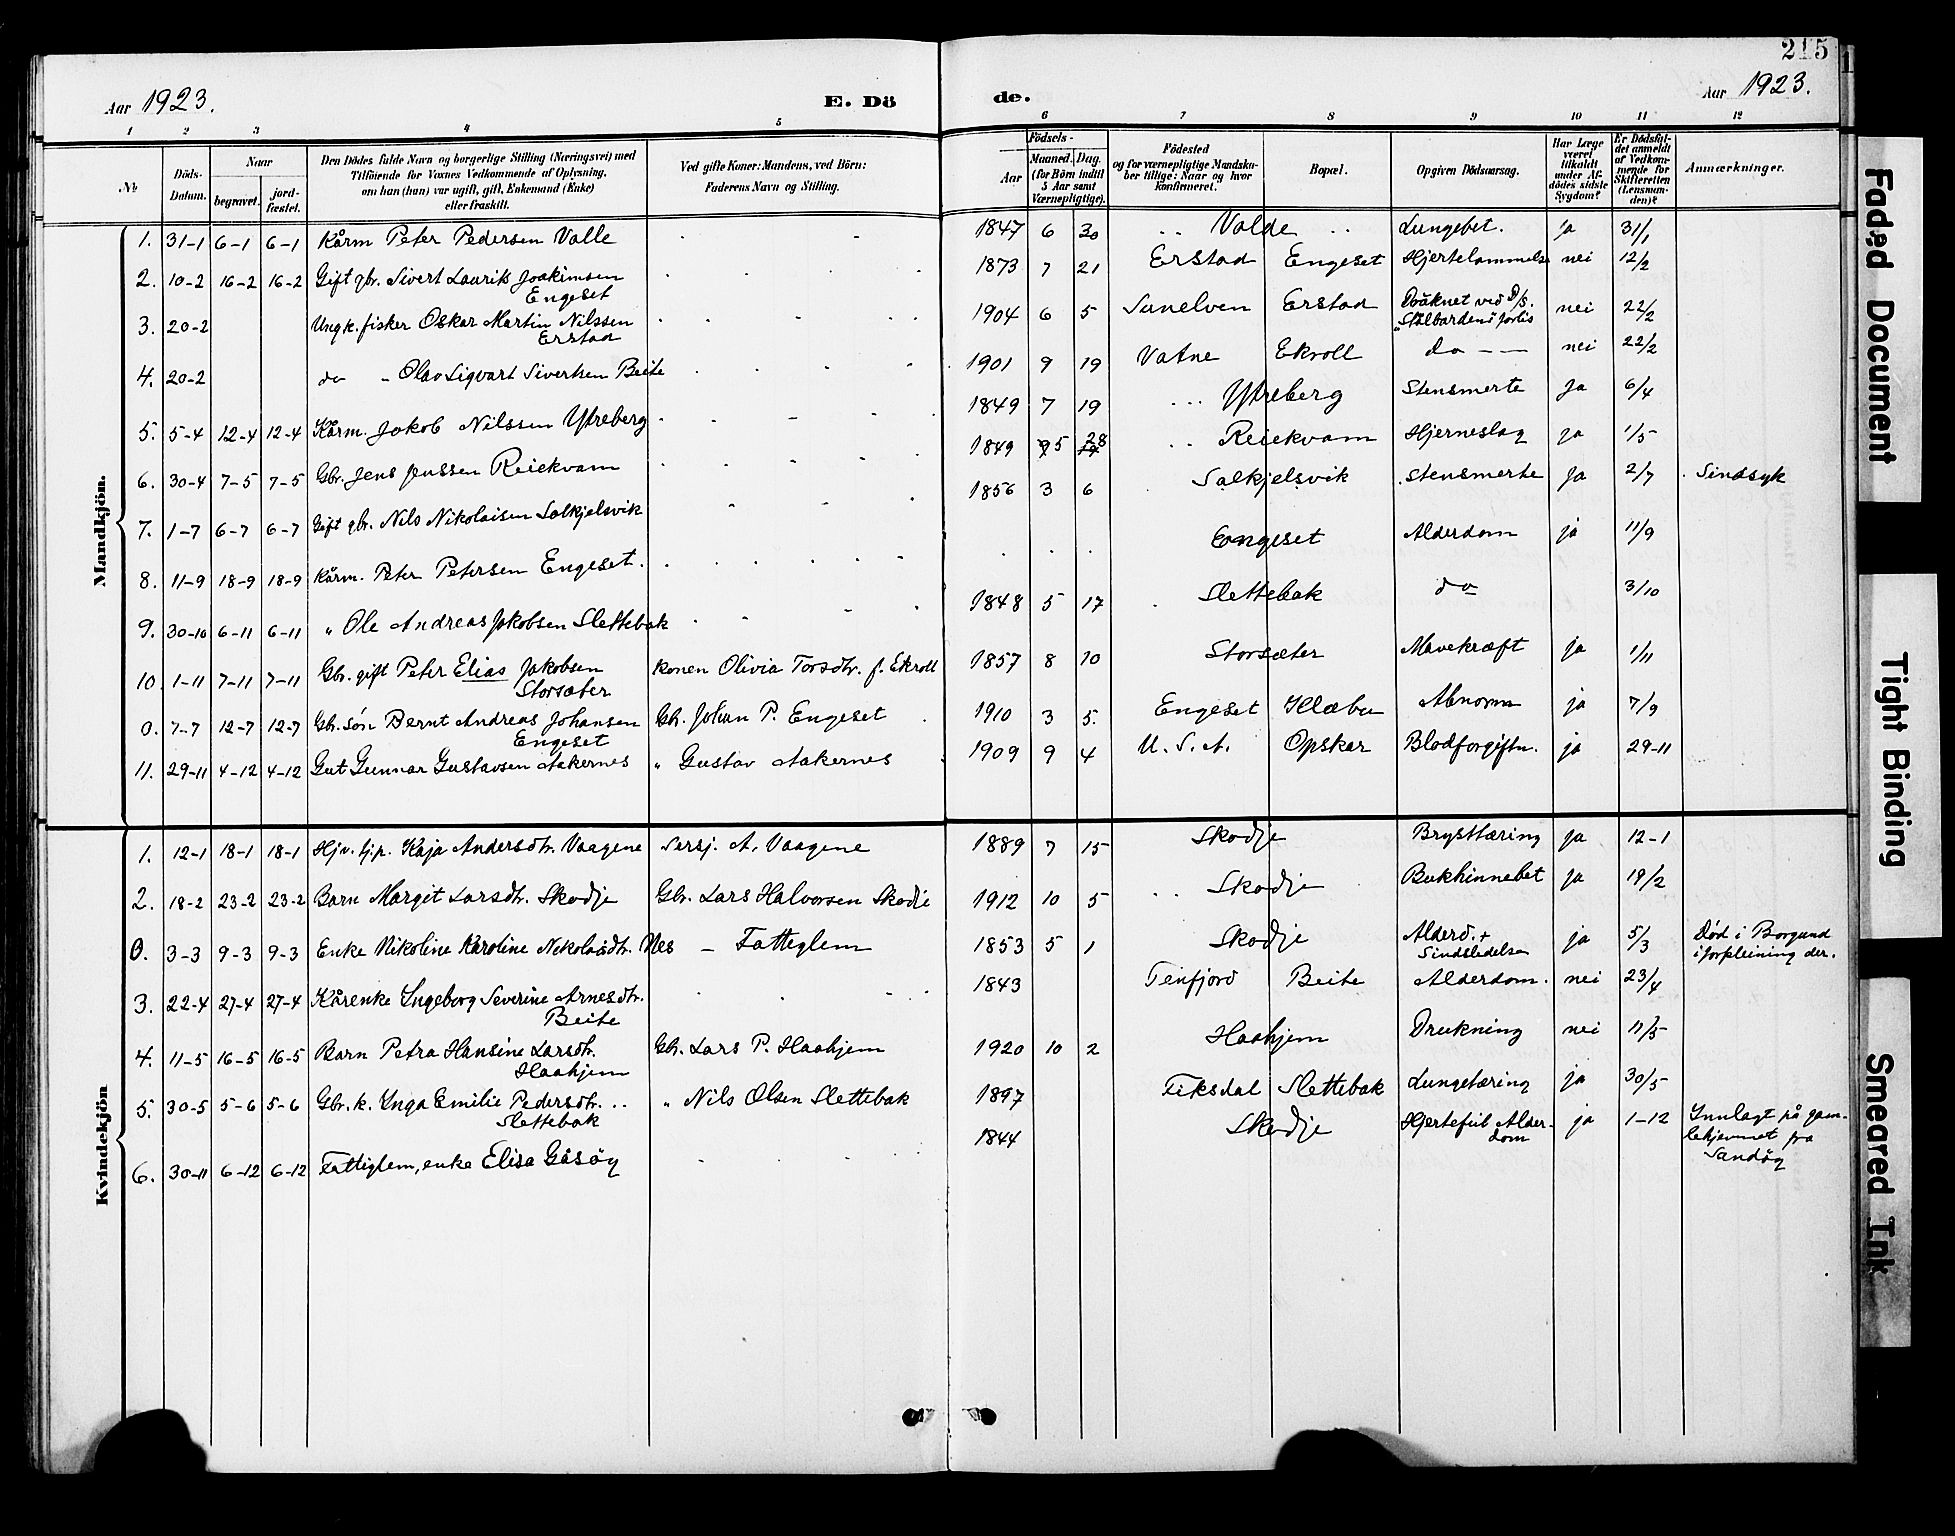 215
Aar 1923.
E. Dö
de.
Aar 1923.
1 2 3 4 5 6 7 8 9 10 11 12
№
Döds-
Datum.
Naar
begravet.
jord-
fæstet.
Den Dödes fulde Navn og borgerlige Stilling (Næringsvei) med
Tilföiende for Voxnes Vedkommende af Oplysning,
om han (hun) var ugift, gift, Enkemand (Enke)
eller fraskilt.
Ved gifte Koner: Mandens, ved Börn:
Faderens Navn og Stilling.
Födsels-
Aar
Maaned. Dag.
(for Börn indtil
5 Aar samt
Værnepligtige).
Födested
og for værnepligtige Mandska-
ber tillige: Naar og hvor
konfirmeret.
Bopæl.
Opgiven Dödsaarsag.
Har Læge
været
tilkaldt
under Af-
dödes sidste
Sygdom?
Er Dödsfal-
det anmeldt
af Vedkom-
mende for
Skifteretten
(Lensman-
den)?
Anmærkninger.
Mandkjön.
1. 31-1 6-1 6-1 Kårm Peter Pedersen Valle 1847 6 30 Valde Lungebet. ja 31/1
2. 10-2 16-2 16-2 Gift gbr. Sivert Laurits Joakimsen 1873 7 21 Erstad Engeset Hjertelammelse nei 12/2
Engeset
3. 20-2 Ungk. fisker Oskar Martin Nilssen 1904 6 5 Sunelven Erstad nei 22/2
Erstad
4. 20-2 do " Olav Sigvart Sivertsen Beite 1901 9 19 Vatne Ekroll do nei 22/2
5. 5-4 12-4 12-4 Kårm. Jakob Nilssen Ytreberg 1849 7 19 Ytreberg Stensmerte Ja 6/4
6. 30-4 7-5 7-5 Gbr. Jens Jenssen Reiekvam 1849 5 28 Reiekvam Hjerneslag ja 1/5
7. 1-7 6-7 6-7 Gift gbr. Nils Nikolaisen Solkjelsvik 1856 3 6 Solkjelsvik Stensmerte Ja 2/7 Sindsyk
8. 11-9 18-9 18-9 Kårm. Peter Petersen Engeset. Engeset Alderdom ja 11/9
9. 30-10 6-11 6-11 " Ole Andreas Jakobsen Slettebak 1848 5 17 Slettebak do 3/10
10. 1-11 7-11 7-11 Gbr. gift Peter Elias Jakobsen Konen Olivia Torsdtr. f. Ekroll 1857 8 10 Storsæter Mavekræft ja 1/11
Storsæter
0. 7-7 12-7 12-7 Gb. søn Bernt Andreas Johansen Gb. Johan P. Engeset 1910 3 5. Engeset Klæbu Abnorm ja 7/9
Engeset
11. 29-11 4-12 4-12 Gut Gunnar Gustavsen Aakernes " Gustav Aakernes 1909 9 4 U.S.A. Opskar Blodforgiftn. ja 29-11
Kvindekjön
1. 12-1 18-1 18-1 Hjv. hjp. Kaja Andersdtr. Vaagene Sersj. A. Vaagene 1889 7 15 Skodje Brysttæring ja 12-1
2. 18-2 23-2 23-2 Barn Margit Larsdtr. Skodje Gbr. Lars Halvorsen Skodje 1912 10 5 Skodje Bukhinnebet ja 19/2
0. 3-3 9-3 9-3 Enke Nikoline Karoline Nikolaisdtr. Nes - Fattiglem 1853 5 1 Skodje Alderd. + ja 5/3 Død i Borgund
Sindslidelse i forpleining der.
3. 22-4 27-4 27-4 Kårenke Ingeborg Severine Arnesdtr. 1843 Tenfjord Beite Alderdom. nei 23/4
Beite
4. 11-5 16-5 16-5 Barn Petra Hansine Larsdtr. Gb. Lars P. Haahjem 1920 10 2 Haahjem Drukning nei 11/5
Haahjem
5. 30-5 5-6 5-6 Gbr. k. Inga Emilie Pedersdtr. " Nils Olsen Slettebak 1897 Fiksdal Slettebak Lungetæring ja 30/5
Slettebak
6. 30-11 6-12 6-12 Fattiglem, enke Elisa Gåsöy 1844 Skodje Hjertefeil Alder- ja 1-12 Innlagt på gam-
dom lehjemmet fra
Sandöy
Faded Document
Tight Binding
Smeared Ink